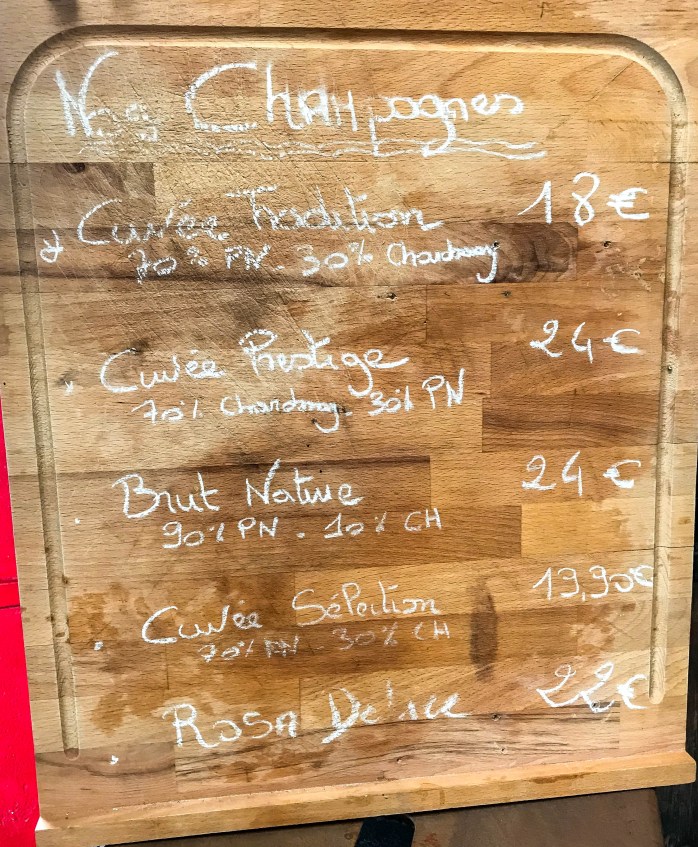 Nos Champagnes
Cuvée Tradition 18€
70% PN - 30% Chardonnay
Cuvée Prestige 24€
70% Chardonnay - 30% PN
Brut Nature 24€
90% PN - 10% CH
Cuvée Sélection 13,90€
70% PN - 30% CH
Rosa 22€